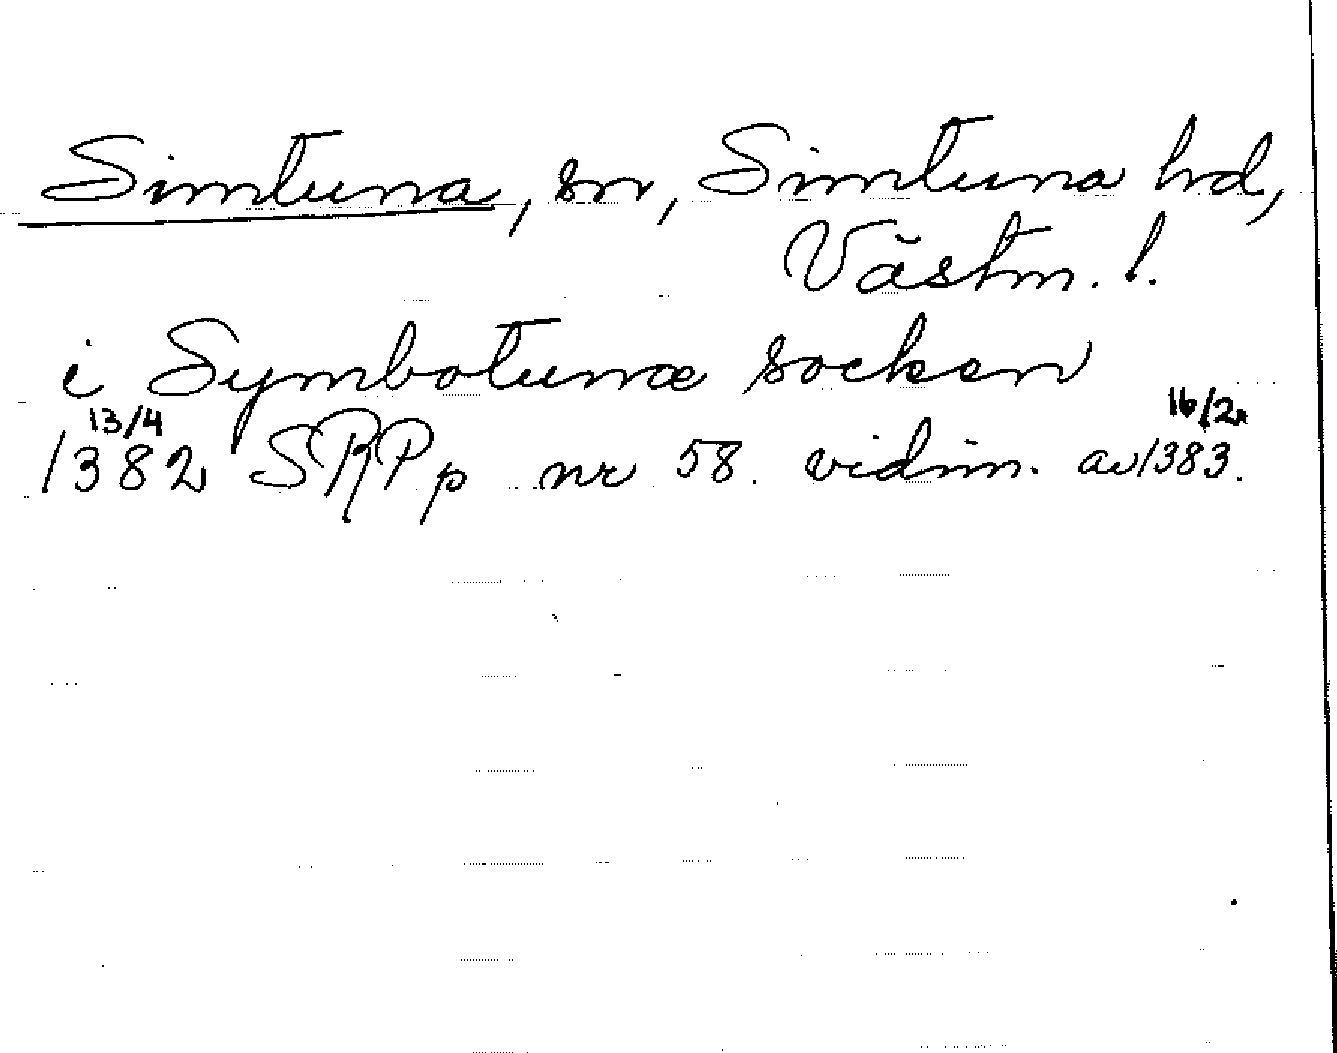 Simtuna, sn, Simtuna hd,
Västm. l.
i Symbotunæ socken
13/4 16/2
1382 SRPp nr 58. vidim. av 1383.